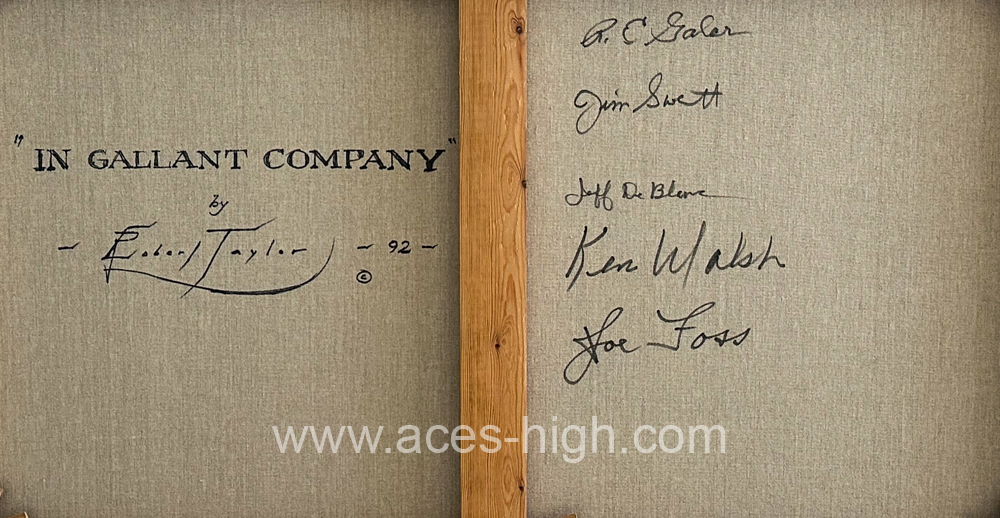 "IN GALLANT COMPANY"
by
- Robert Taylor - 92 -
©
R. E Galer
Jim Swett
Jeff De Blanc
Ken Walsh
Joe Foss
www.aces-high.com